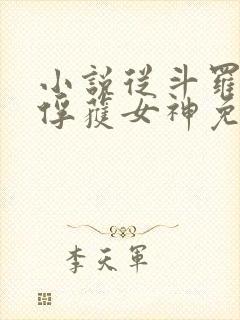 小說從斗羅
俘獲女神免
李天軍